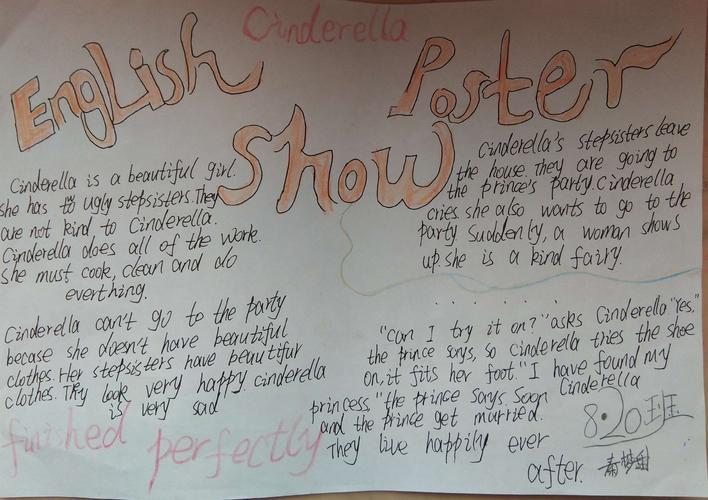 Cinderella
English Poster
Show
Cinderella is a beautiful girl.
she has ugly stepsisters. They
are not kind to Cinderella.
Cinderella does all of the work.
She must cook, clean and do
everthing.
Cinderella can't go to the party
becase she doesn't have beautiful
clothes. Her stepsisters have beautifur
clothes. They look very happy. cinderella
is very sad
finished perfectly
Cinderella's stepsisters leave
the house. They are going to
the prince's party. Cinderella
cries. she also wants to go to the
party. Suddenly, a woman shows
up. she is a kind fairy.
. . . . . .
"Can I try it on?" asks Cinderella "Yes,"
the prince says, so Cinderella tries the shoe
on, it fits her foot. "I have found my
princess, "the prince says. Soon Cinderella
and the prince get married.
They live happily ever
after.
8.20班